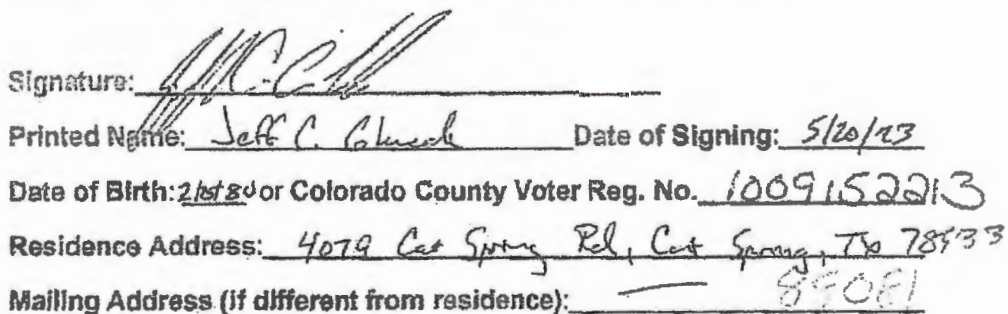 Signature:
Printed Name: Jeff C. Date of Signing: 5/20/23
Date of Birth: or Colorado County Voter Reg. No. 1009152213
Residence Address: 4079 Cat Spring Rd, Cat Spring, Tx 78933
Mailing Address (if different from residence): —